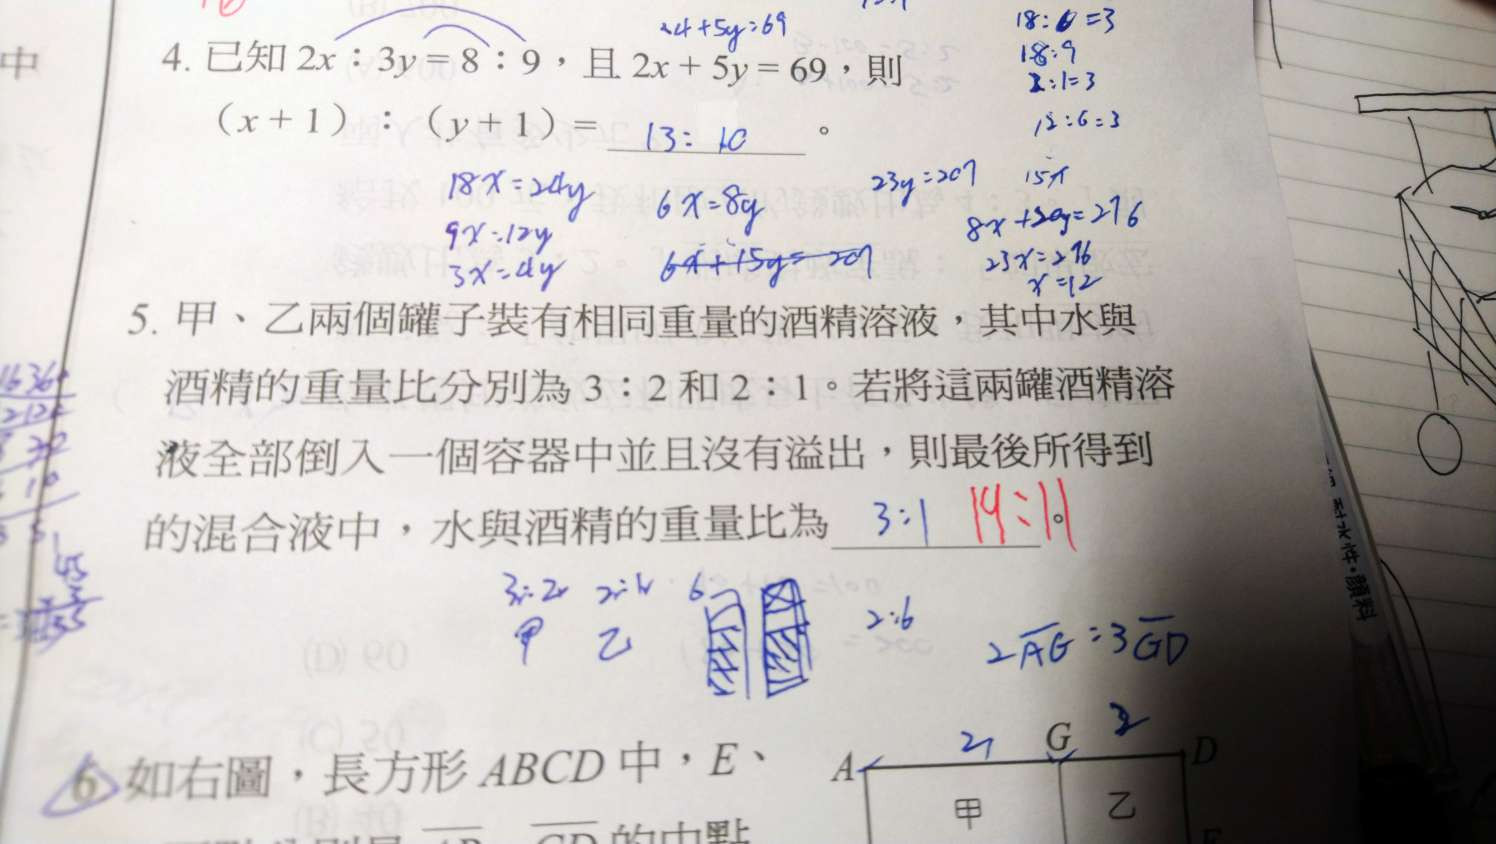 中
4+5y=69
4. 已知 2x：3y = 8：9，且 2x + 5y = 69，則
（x + 1）：（y + 1）= 13:10 。
18:6=3
18:9
12:6=3
18x=24y
9x=12y
3x=4y
6x=8y
6x+15y=207
23y=207
8x+20y=276
23x=276
x=12
5. 甲、乙兩個罐子裝有相同重量的酒精溶液，其中水與
酒精的重量比分別為 3：2 和 2：1。若將這兩罐酒精溶
液全部倒入一個容器中並且沒有溢出，則最後所得到
的混合液中，水與酒精的重量比為 3:1 19:11 。
甲 乙
2:6
2AG=3GD
耐水性·顏料
6 如右圖，長方形 ABCD 中，E、
A G D
甲 乙
的中點